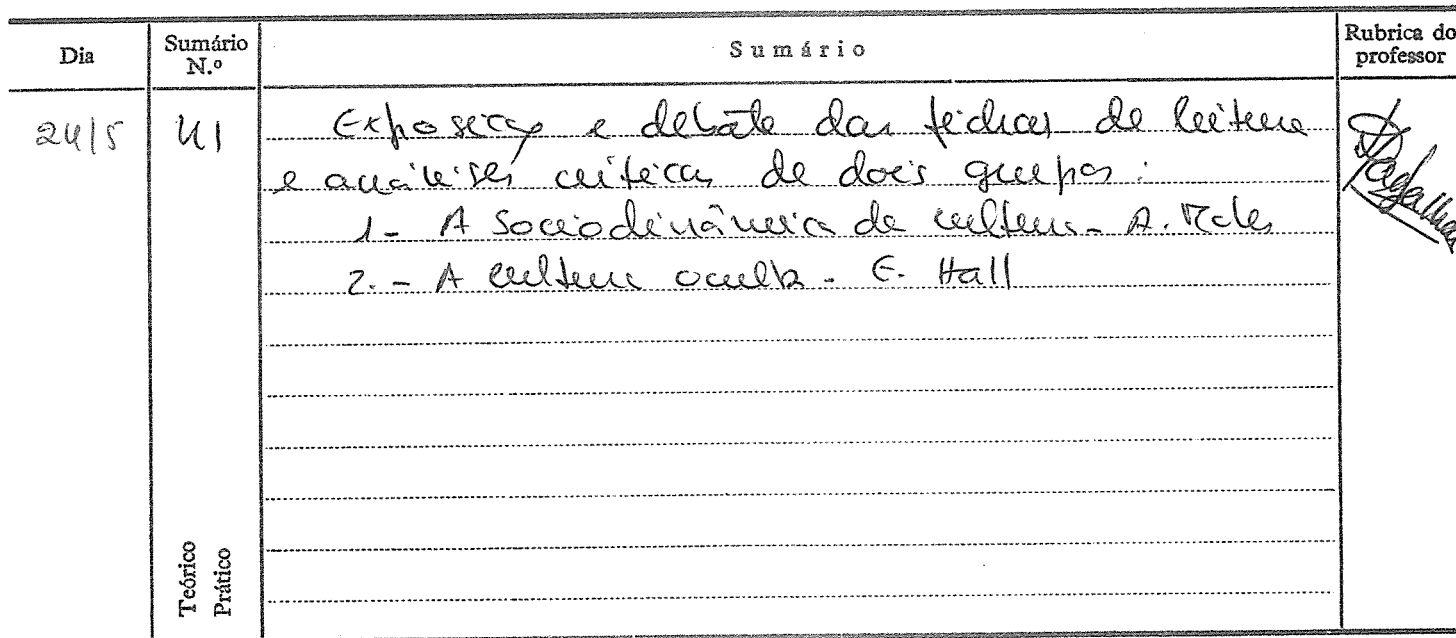 Dia Sumário N.º Sumário Rubrica do professor
24/5 41 Exposição e debate das fichas de leitura
e análises críticas de dois grupos:
1- A Sociodinâmica da cultura - A. Moles
2. - A cultura oculta - E. Hall
Teórico
Prático